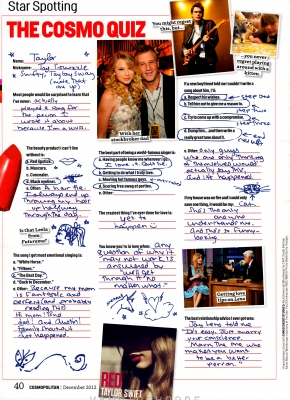 Star Spotting
THE COSMO QUIZ
You might regret
this, but...
...you never
regret playing
around with a
kitten.
Name: Taylor
Nickname: Tay
& Swifty, Taylor Sway
Most people would be surprised to know that
I've never: actually
played a song for
the person I
wrote it about
because I'm a wuss.
With her
stockbroker dad
If a new boyfriend told me I couldn't write a
song about him, I'd:
a. Respect his wishes.
b. Tell him to give me a reason to.
c. Try to come up with a compromise.
d. Dump him... and then write a
really great tune about it.
e. Other: Only guys
who are only thinking
of themselves would
actually say this,
and it's happened
The beauty product I can't live
without is:
a. Red lipstick.
b. Mascara.
c. Concealer.
d. Black eyeliner.
e. Other: A hair tie.
I always end up
throwing my hair
up halfway
through the day.
Is that Leela
from
Futurama?
The best part of being a world-famous singer is:
a. Having people know me wherever I go.
I love it. Don't be.
b. Getting to do what I truly love.
c. Meeting hot famous guys.
d. Scoring free swag at parties.
e. Other:
The craziest thing I've ever done for love is:
yet to
happen
If my house was on fire and I could only
save one thing, it would be: my cat.
She's the only
one who
understands me
and she's so funny-
looking.
The song I get most emotional singing is:
a. "White Horse."
b. "Fifteen."
c. "The Best Day."
d. "Back to December."
e. Other: Because my mom
is fantastic and
perfect (and probably
reading this)
Hi mom! And
dad! And Austin!
family shoutout
just happened.
You know you're in love when: any
question of why it
"may not work" is
answered by
"we'll get
through it no
matter what."
Getting love
tips on Leno
The best relationship advice I ever got was:
Jay Leno told me
"It's easy. Just marry
your conscience.
Marry the one who
makes you want
to be a better
person."
RED
TAYLOR SWIFT
40 COSMOPOLITAN | December 2012